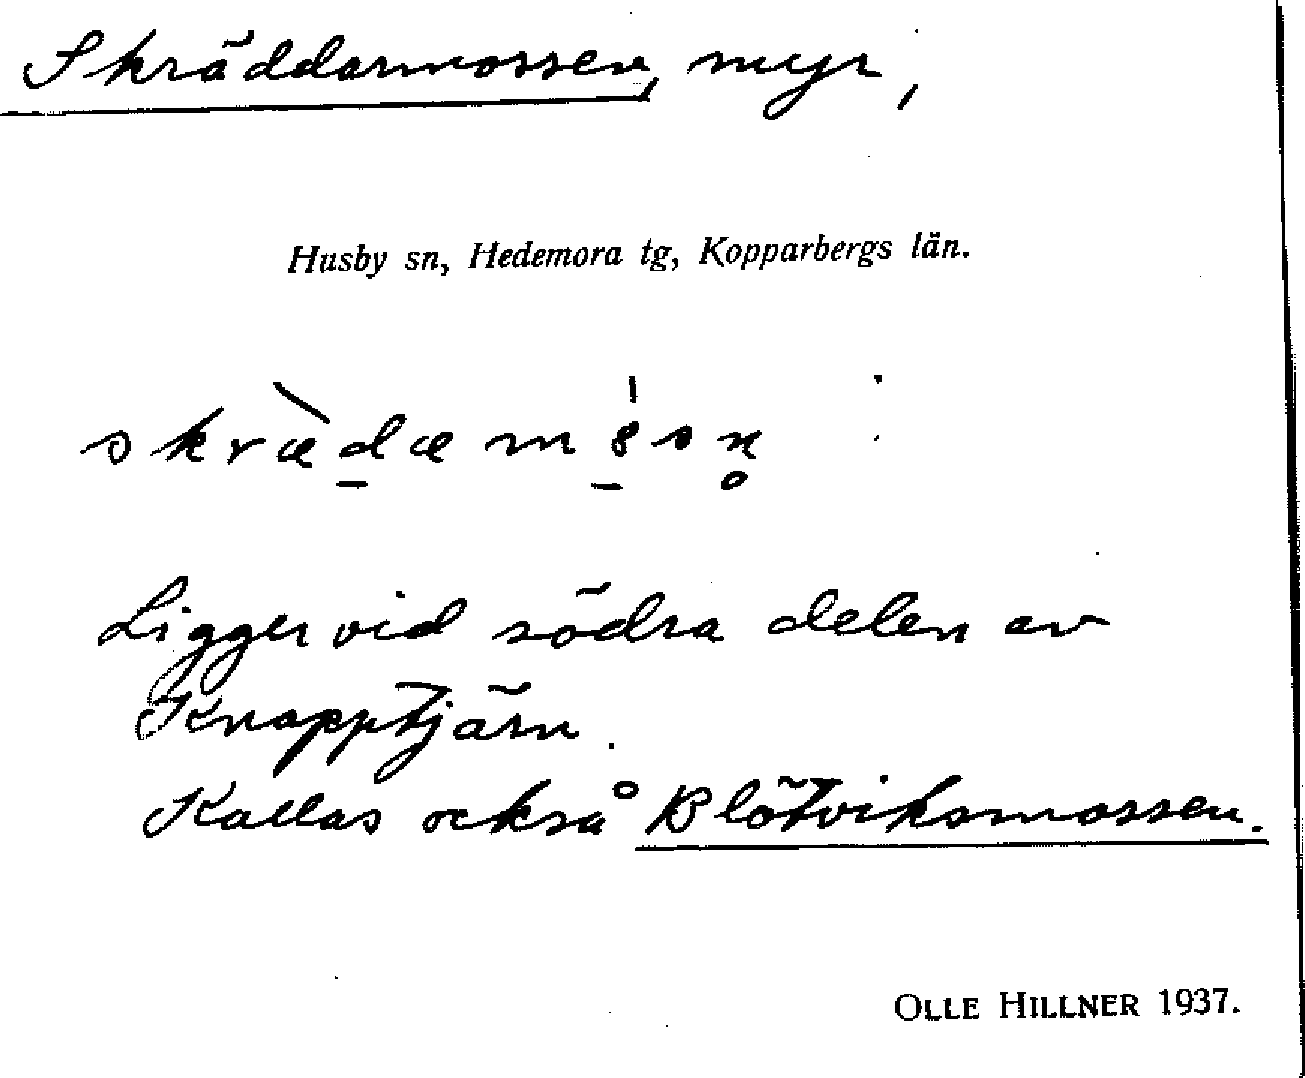 Skräddarmossen, myr,
Husby sn, Hedemora tg, Kopparbergs län.
skræ̀d̠æm8̠́sn̥
Ligger vid södra delen av
Knapptjärn.
Kallas också Blötviksmossen.
OLLE HILLNER 1937.